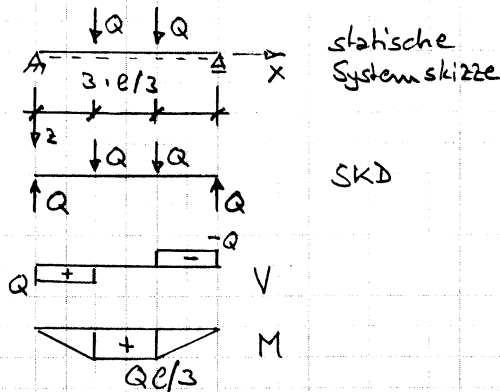 Q Q
A
statische
x
Systemskizze
3·l/3
z
Q Q
SKD
Q Q
-Q
-
Q + V
+ M
Ql/3